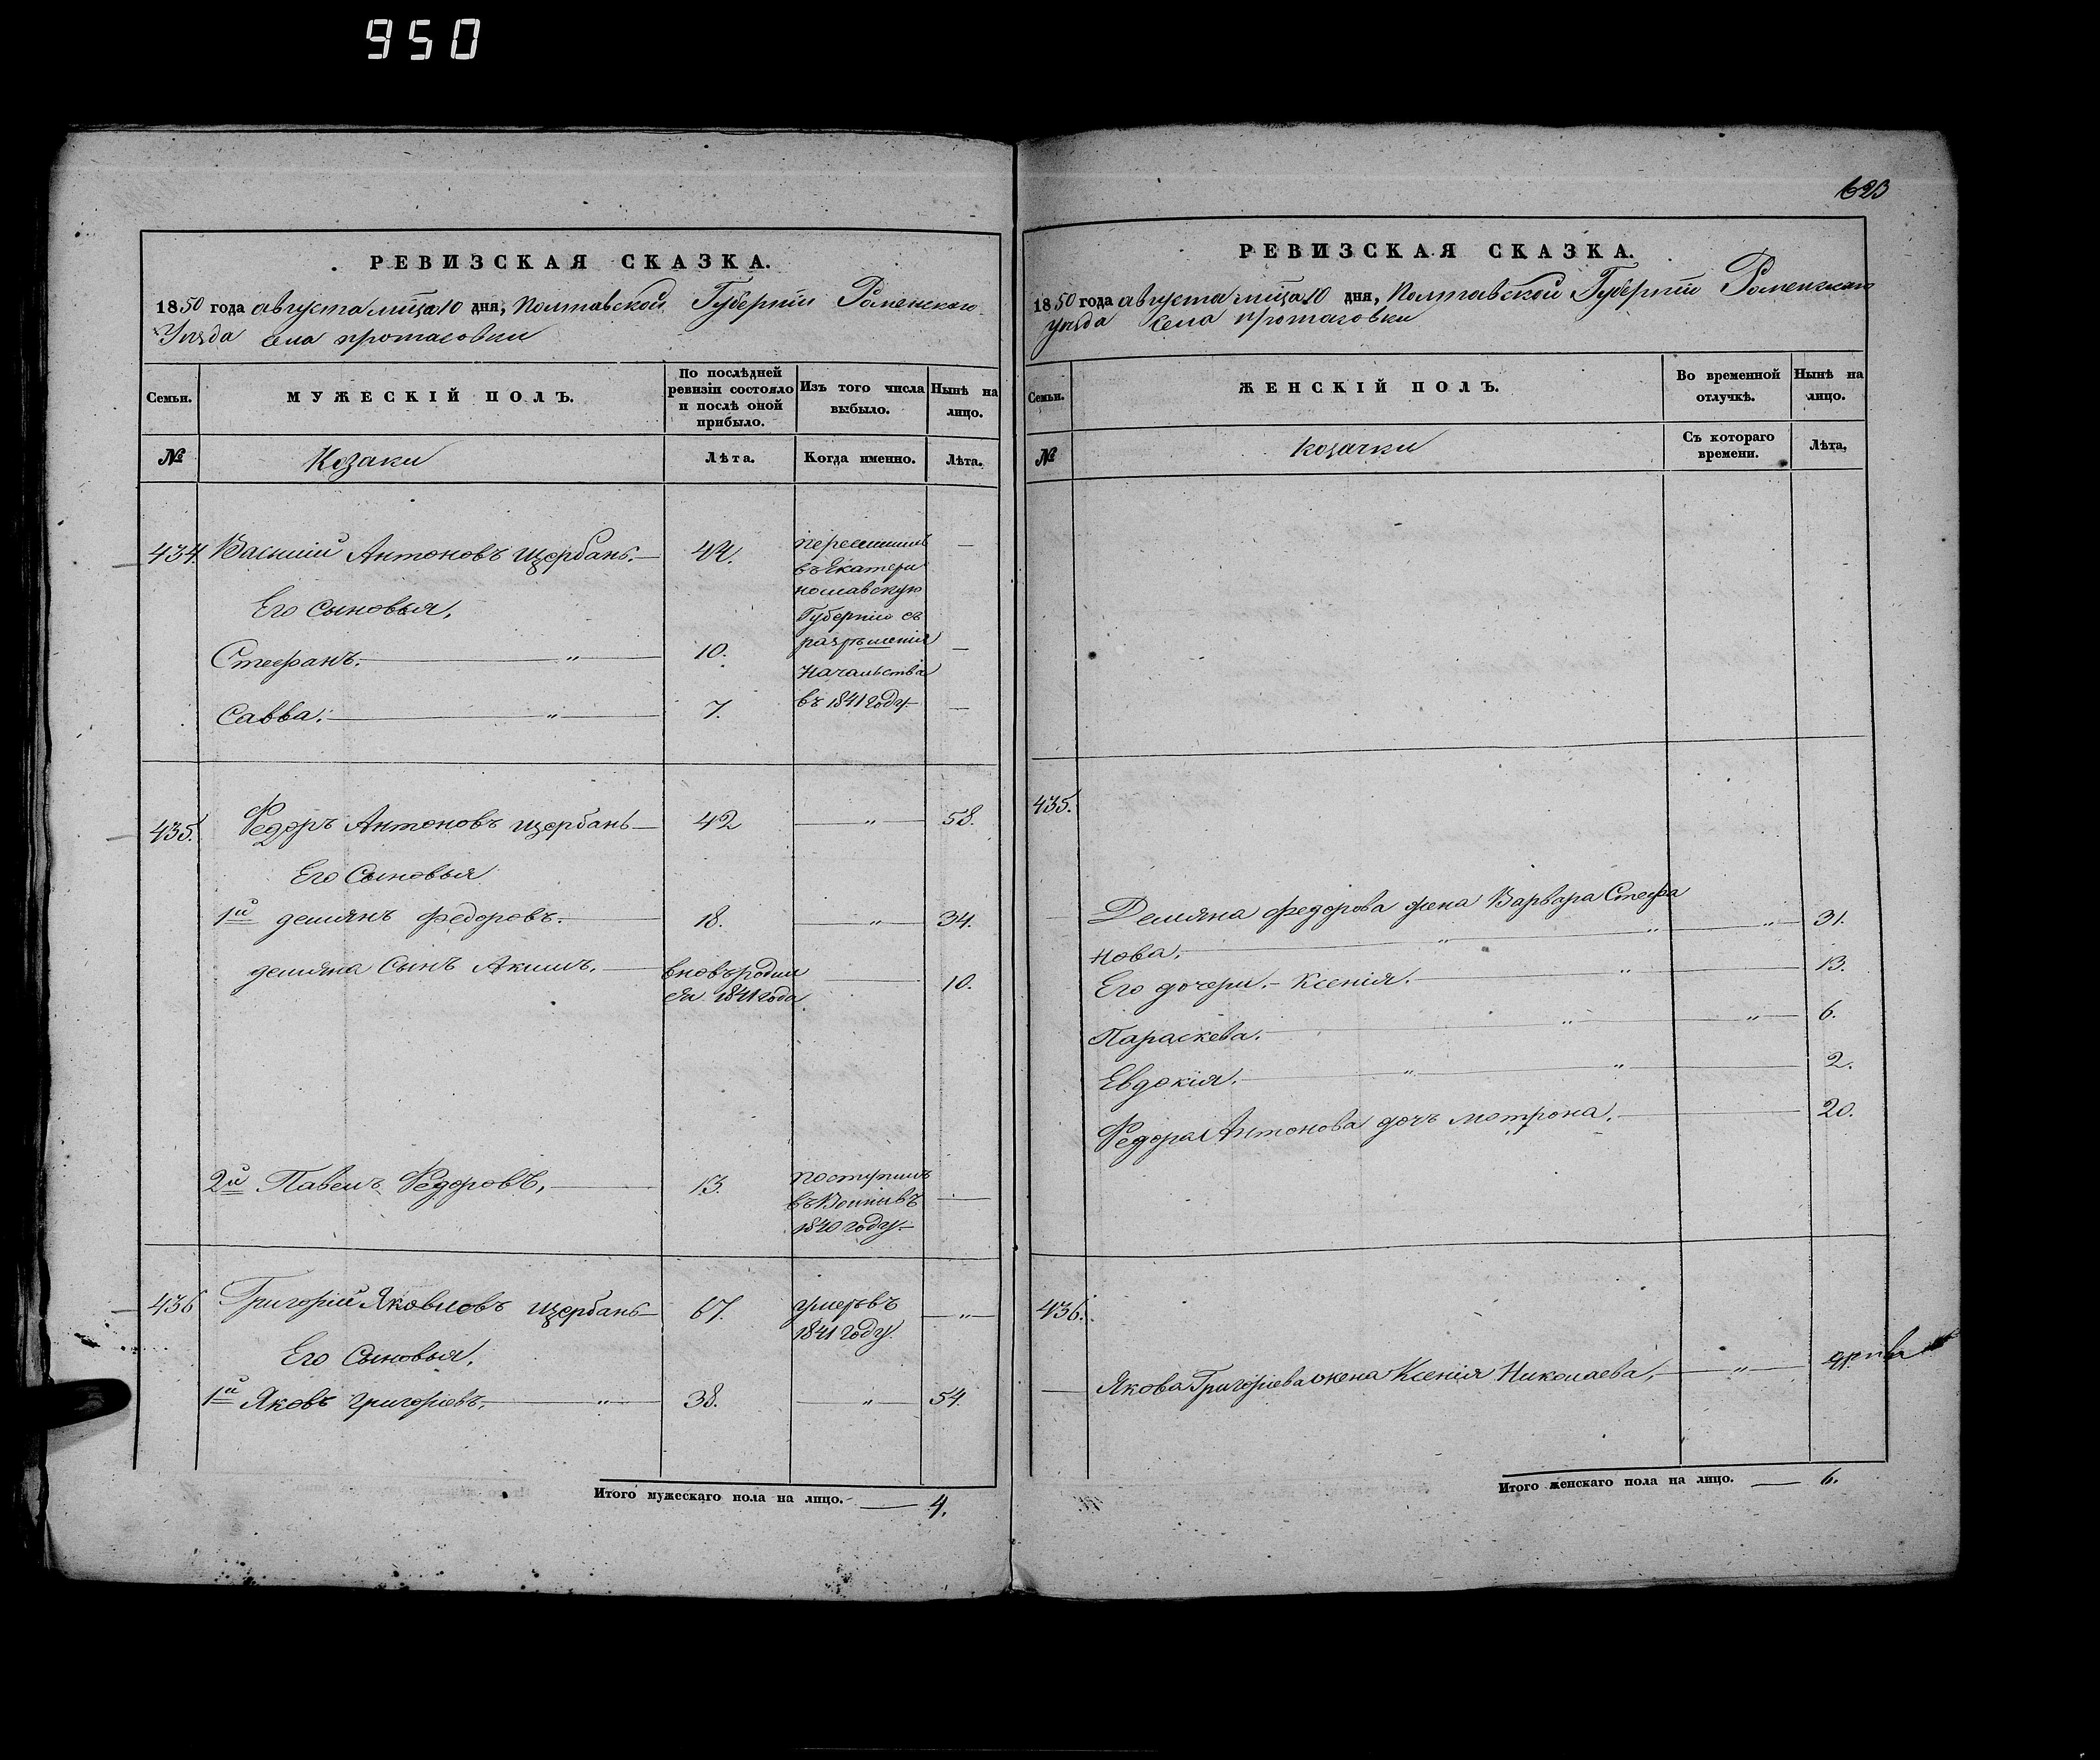 950
РЕВИЗСКАЯ СКАЗКА.
1850 года августа мца 10 дня, Полтавской Губерніи Роменскаго
Уѣзда села протасовки
Семьи.
МУЖЕСКІЙ ПОЛЪ.
По послѣдней ревизіи состояло и послѣ оной прибыло.
Изъ того числа выбыло.
Нынѣ на лицо.
№
Козаки
Лѣта.
Когда именно.
Лѣта.
434. Василій Антоновъ Щербань.— 44. переселилъ —
въ Екатери
нославскую
Его Сыновья,
Губернію съ
разрѣшенія
Стефанъ. — " — 10. —
Начальства
Савва. — " — 7. въ 1841 году —
435. Федоръ Антоновъ щербань — 42 — " — 58.
Его Сыновья
1й демянъ федоровъ. — 18. — " — 34.
демяна Сынъ Акимъ. — вновь родил — 10.
ся 1841 года
2й Павелъ Федоровъ, — 13. поступилъ —
1840 году.
436 Григорій Яковлевъ щербань — 67. умеръ въ — " —
1841 году.
Его Сыновья,
1й Яковъ григорьевъ. — " — 38. — " — 54.
Итого мужескаго пола на лицо. — 4.
623
РЕВИЗСКАЯ СКАЗКА.
1850 года августа мца 10 дня, Полтавской Губерніи Роменскаго
уѣзда села протасовки
Семьи.
ЖЕНСКІЙ ПОЛЪ.
Во временной отлучкѣ.
Нынѣ на лицо.
№
козачки
Съ котораго времени.
Лѣта,
435.
Демяна федорова жена Варвара Стефа
нова. — " — " — " — 31.
Его дочери. - Ксенія. — " — 13.
Параскева. — " — " — 6.
Евдокія. — " — " — 2.
Федора Антонова дочь мотрона. — 20.
436.
— Якова Григорьева жена Ксенія Николаева, — " —
Итого женскаго пола на лицо. — 6.